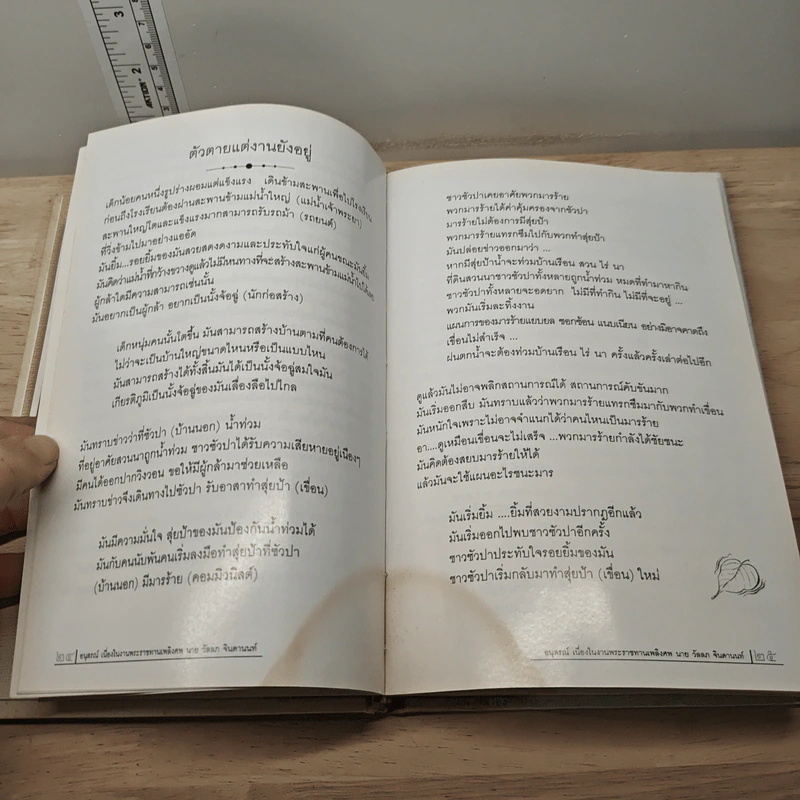 ตัวตายแต่งานยังอยู่
เด็กน้อยคนหนึ่งรูปร่างผอมแต่แข็งแรง เดินข้ามสะพานเพื่อไปโรงเรียน
ก่อนถึงโรงเรียนต้องผ่านสะพานข้ามแม่น้ำใหญ่ (แม่น้ำเจ้าพระยา)
สะพานใหญ่โตและแข็งแรงมากสามารถรับรถม้า (รถยนต์)
ที่วิ่งข้ามไปมาอย่างแออัด
มันยิ้ม...รอยยิ้มของมันสวยสดงดงามและประทับใจแก่ผู้คนขณะมันยิ้ม
มันคิดว่าแม่น้ำที่กว้างขวางดูแล้วไม่มีหนทางที่จะสร้างสะพานข้ามแม่น้ำไปได้
ผู้กล้าใดมีความสามารถเช่นนั้น
มันอยากเป็นผู้กล้า อยากเป็นนั้งจ้อฉู่ (นักก่อสร้าง)
เด็กหนุ่มคนนั้นโตขึ้น มันสามารถสร้างบ้านตามที่คนต้องการได้
ไม่ว่าจะเป็นบ้านใหญ่ขนาดไหนหรือเป็นแบบไหน
มันสามารถสร้างได้ทั้งสิ้นมันได้เป็นนั้งจ้อฉู่สมใจมัน
เกียรติภูมิเป็นนั้งจ้อฉู่ของมันเลื่องลือไปไกล
มันทราบข่าวว่าที่ชัวปา (บ้านนอก) น้ำท่วม
ที่อยู่อาศัยสวนนาถูกน้ำท่วม ชาวชัวปาได้รับความเสียหายอยู่เนืองๆ
มีคนได้ออกปากวิงวอน ขอให้มีผู้กล้ามาช่วยเหลือ
มันทราบข่าวจึงเดินทางไปชัวปา รับอาสาทำสุ่ยป้า (เขื่อน)
มันมีความมั่นใจ สุ่ยป้าของมันป้องกันน้ำท่วมได้
มันกับคนนับพันคนเริ่มลงมือทำสุ่ยป้าที่ชัวปา
(บ้านนอก) มีมารร้าย (คอมมิวนิสต์)
๒๔ อนุสรณ์ เนื่องในงานพระราชทานเพลิงศพ นาย วัลลภ จินดานนท์
ชาวชัวปาเคยอาศัยพวกมารร้าย
พวกมารร้ายได้ค่าคุ้มครองจากชัวปา
มารร้ายไม่ต้องการมีสุ่ยป้า
พวกมารร้ายแทรกซึมไปกับพวกทำสุ่ยป้า
มันปล่อยข่าวออกมาว่า ...
หากมีสุ่ยป้าน้ำจะท่วมบ้านเรือน สวน ไร่ นา
ที่ดินสวนนาชาวชัวปาทั้งหลายถูกน้ำท่วม หมดที่ทำมาหากิน
ชาวชัวปาทั้งหลายจะอดยาก ไม่มีที่ทำกิน ไม่มีที่จะอยู่ ...
พวกมันเริ่มละทิ้งงาน
แผนการของมารร้ายแยบยล ซอกซ้อน แนบเนียน อย่างมิอาจคาดถึง
เขื่อนไม่สำเร็จ ...
ฝนตกน้ำจะต้องท่วมบ้านเรือน ไร่ นา ครั้งแล้วครั้งเล่าต่อไปอีก
ดูแล้วมันไม่อาจพลิกสถานการณ์ได้ สถานการณ์คับขันมาก
มันเริ่มออกสืบ มันทราบแล้วว่าพวกมารร้ายแทรกซึมมากับพวกทำเขื่อน
มันหนักใจเพราะไม่อาจจำแนกได้ว่าคนไหนเป็นมารร้าย
อา....ดูเหมือนเขื่อนจะไม่เสร็จ ...พวกมารร้ายกำลังได้ชัยชนะ
มันคิดต้องสยบมารร้ายให้ได้
แล้วมันจะใช้แผนอะไรชนะมาร
มันเริ่มยิ้ม ....ยิ้มที่สวยงามปรากฏอีกแล้ว
มันเริ่มออกไปพบชาวชัวปาอีกครั้ง
ชาวชัวปาประทับใจรอยยิ้มของมัน
ชาวชัวปาเริ่มกลับมาทำสุ่ยป้า (เขื่อน) ใหม่
อนุสรณ์ เนื่องในงานพระราชทานเพลิงศพ นาย วัลลภ จินดานนท์ ๒๕